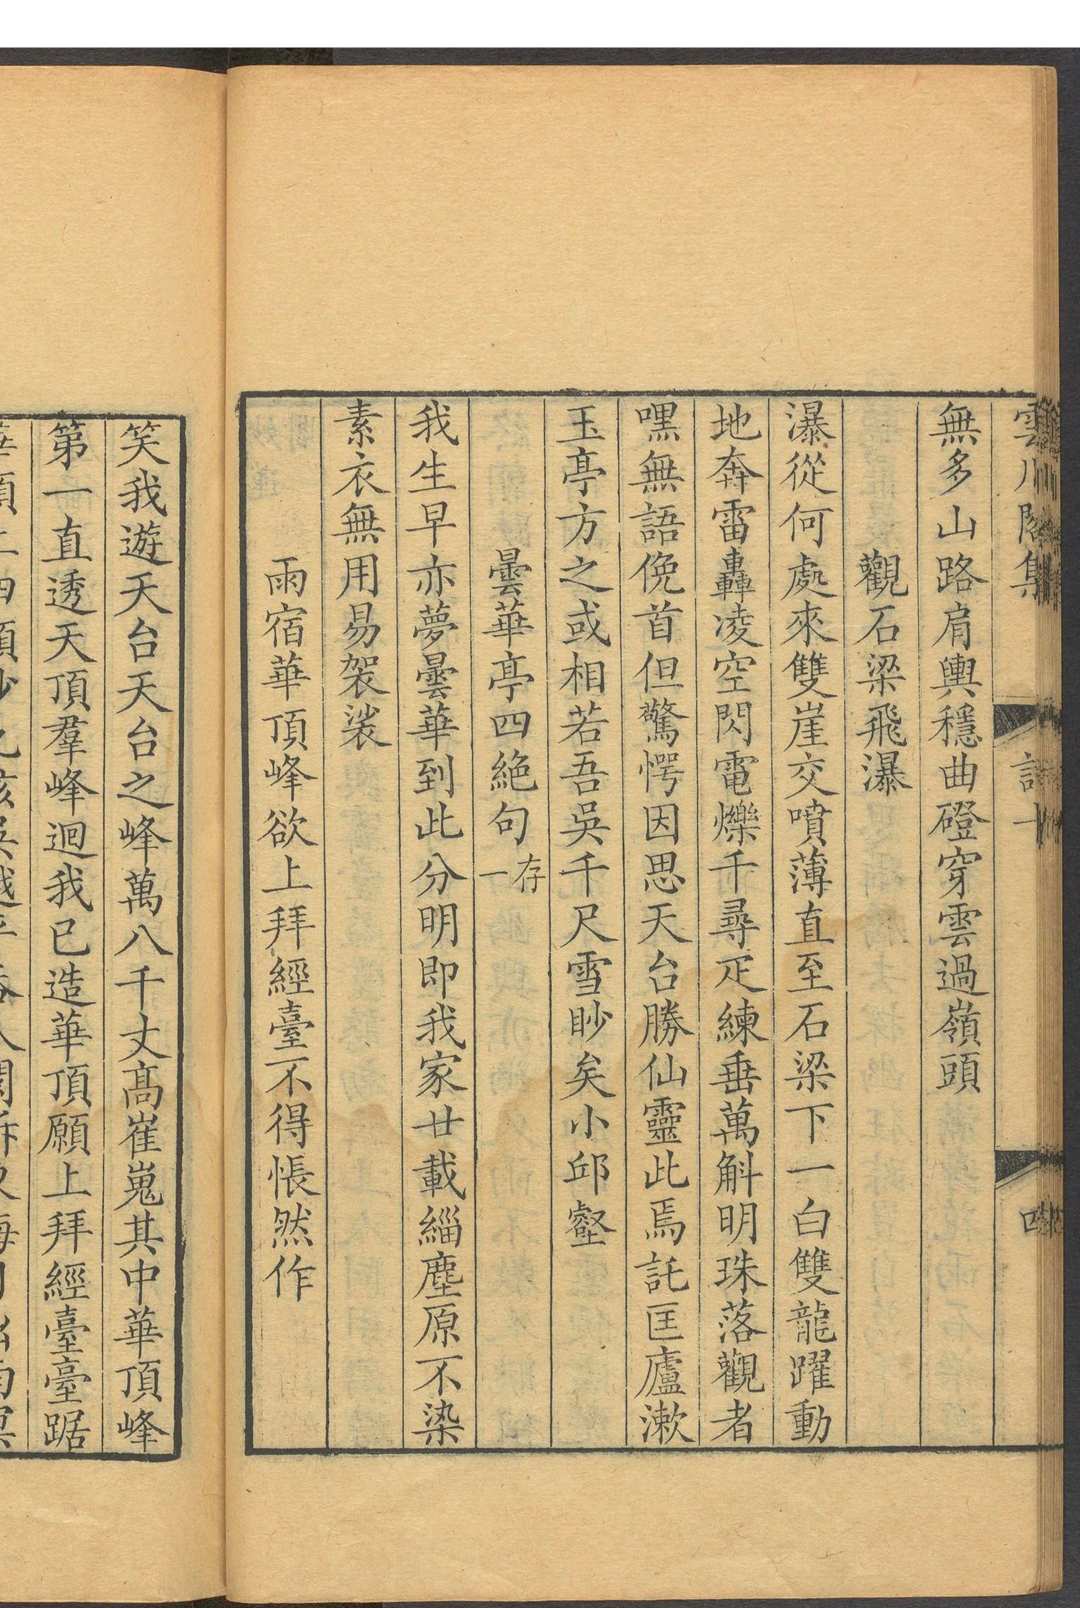 雲川閣集 詩十 四
無多山路肩輿穩曲磴穿雲過嶺頭
觀石梁飛瀑
瀑從何處來雙崖交噴薄直至石梁下一白雙龍躍動
地奔雷轟凌空閃電爍千尋疋練垂萬斛明珠落觀者
嘿無語俛首但驚愕因思天台勝仙靈此焉託匡廬漱
玉亭方之或相若吾吳千尺雪眇矣小邱壑
曇華亭四絶句存一
我生早亦夢曇華到此分明即我家廿載緇塵原不染
素衣無用易袈裟
雨宿華頂峰欲上拜經臺不得悵然作
笑我遊天台天台之峰萬八千丈高崔嵬其中華頂峰
第一直透天頂羣峰迴我已造華頂願上拜經臺臺踞